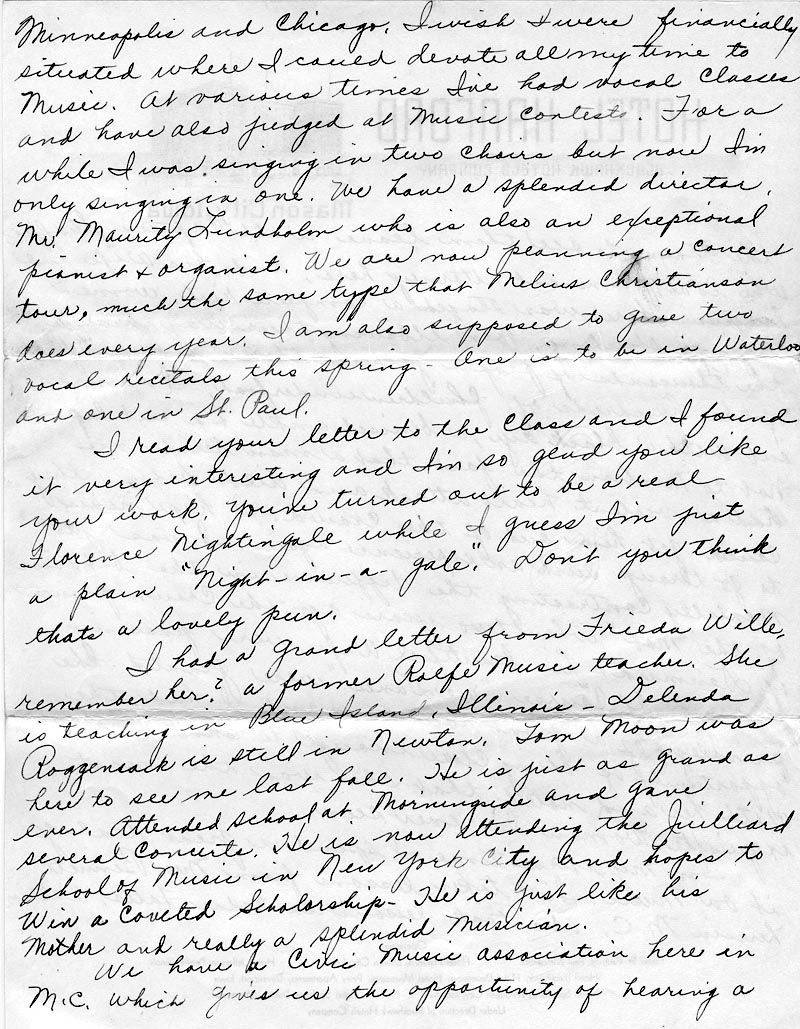 Minneapolis and Chicago. I wish I were financially
situated where I could devote all my time to
Music. At various times I've had vocal Classes
and have also judged at Music Contests. For a
while I was singing in two Choirs but now I'm
only singing in one. We have a splendid director,
Mr. Maurity Lundholm who is also an exceptional
pianist & organist. We are now planning a concert
tour, much the same type that Melius Christianson
does every year. I am also supposed to give two
vocal recitals this spring - One is to be in Waterloo
and one in St. Paul.
I read your letter to the Class and I found
it very interesting and I'm so glad you like
your work. You've turned out to be a real
Florence Nightingale while I guess I'm just
a plain "Night-in-a-gale". Don't you think
thats a lovely pun.
I had a grand letter from Frieda Wille,
remember her? a former Rolfe Music teacher. She
is teaching in Blue Island, Illinois - Delenda
Roggensack is still in Newton. Tom Moon was
here to see me last fall. He is just as grand as
ever. Attended school at Morningside and gave
several Concerts. He is now attending the Juilliard
School of Music in New York City and hopes to
Win a Coveted Scholarship - He is just like his
Mother and really a splendid Musician.
We have a Civic Music association here in
M.C. which gives us the opportunity of hearing a
HOTEL HANFORD
Mason City, Iowa